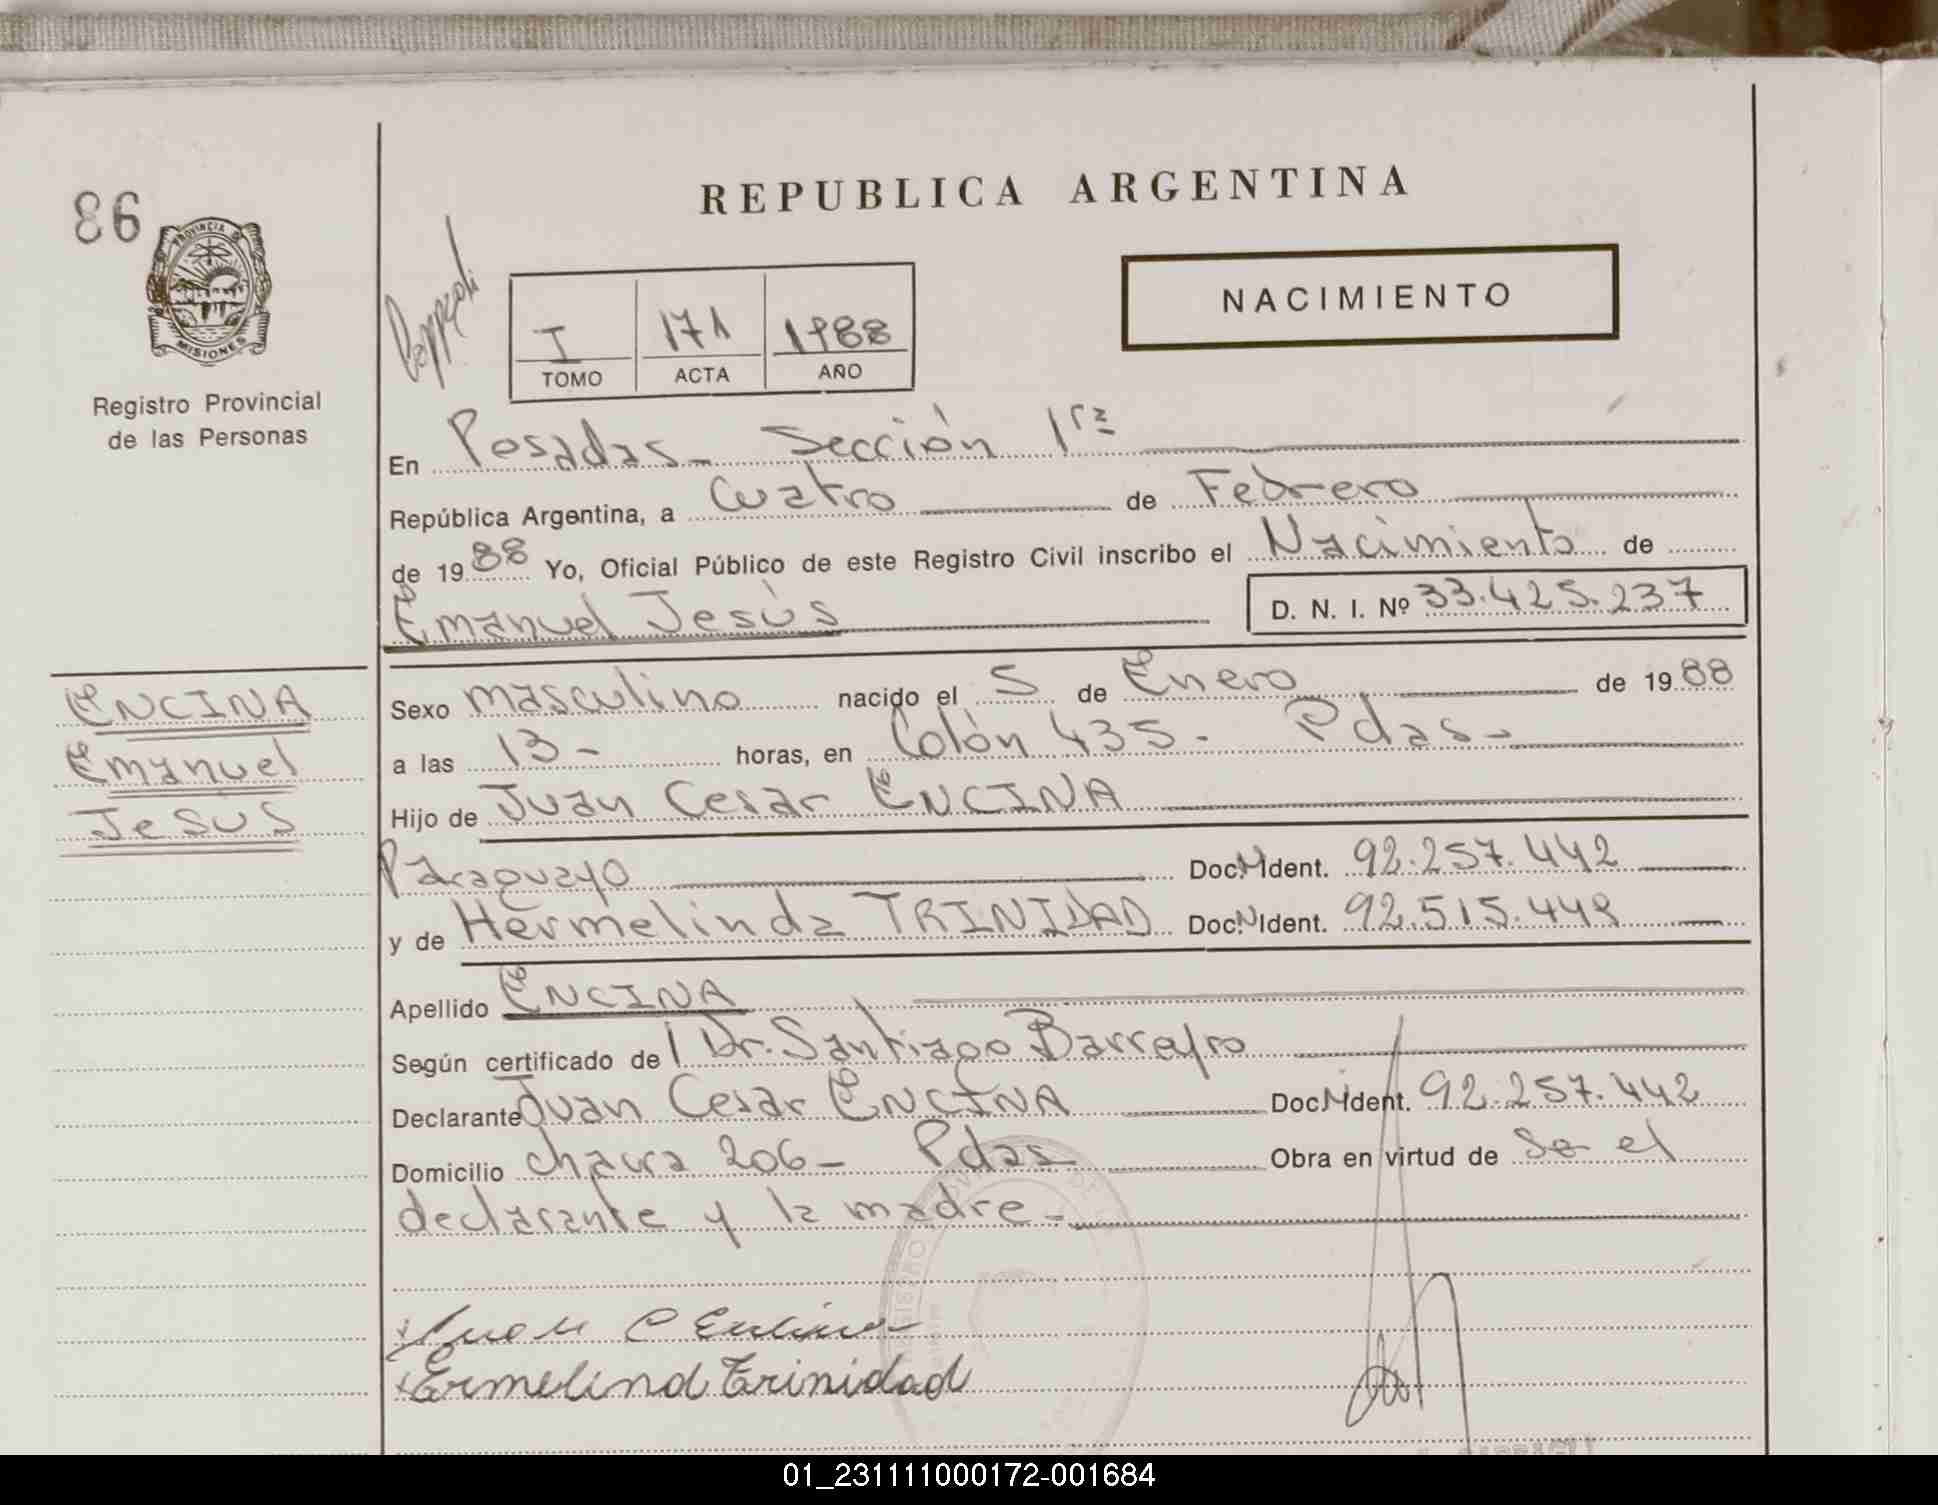 REPUBLICA ARGENTINA
86
PROVINCIA DE MISIONES
Registro Provincial
de las Personas
NACIMIENTO
I 171 1988
TOMO ACTA AÑO
En Posadas - Sección 1ra
República Argentina, a Cuatro de Febrero
de 1988 Yo, Oficial Público de este Registro Civil inscribo el Nacimiento de
Emanuel Jesús D. N. I. Nº 33.425.237
ENCINA
Emanuel
Jesús
Sexo masculino nacido el 5 de Enero de 1988
a las 13 - horas, en Colón 435. Pdas -
Hijo de Juan Cesar ENCINA
Paraguayo Doc. N Ident. 92.257.442
y de Hermelinda TRINIDAD Doc. N Ident. 92.515.448
Apellido ENCINA
Según certificado de Dr. Santiago Barreyro
Declarante Juan Cesar ENCINA Doc N Ident. 92.257.442
Domicilio chaura 206 - Pdas Obra en virtud de Se el
declarante y la madre -
Juan C Encina
Ermelind Trinidad
01_231111000172-001684